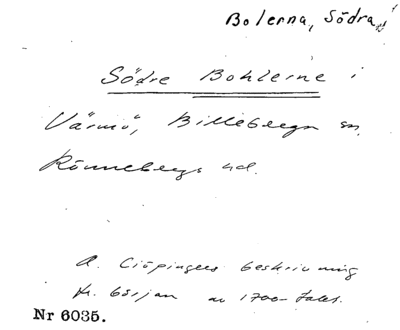 Bolerna, Södra
Södre Bohlerne i
Värmö, Billebergа sn,
Rönnebergs hd.
A. Ciöpingers beskrivning
fr. början av 1700-talet.
Nr 6035.